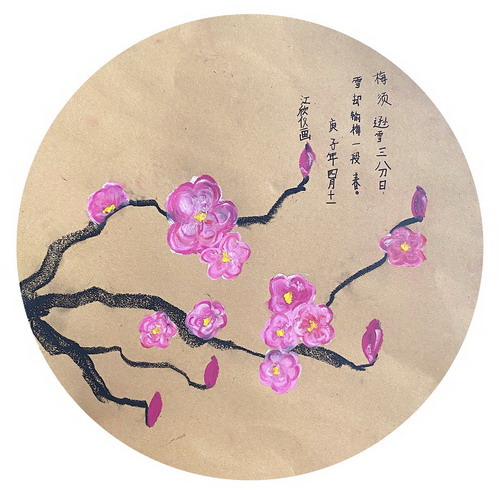 梅须逊雪三分日.
雪却输梅一段春。
庚子年四月十一
江欣仪画